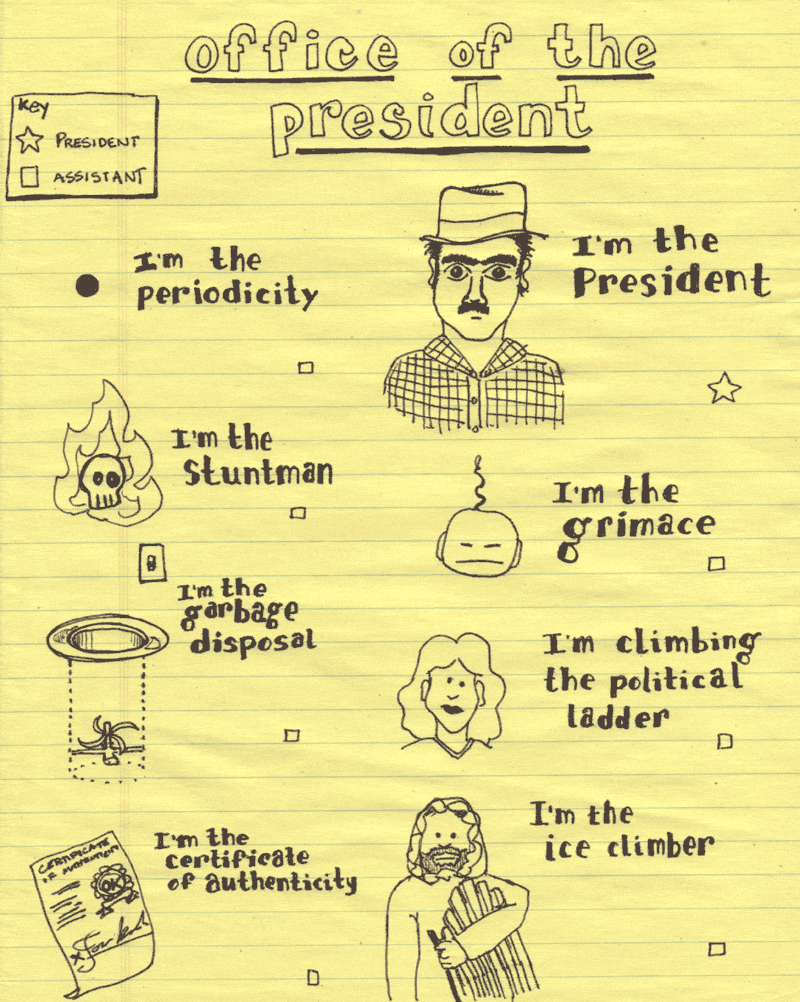 office of the
president
Key
PRESIDENT
ASSISTANT
I'm the
periodicity
I'm the
President
I'm the
Stuntman
I'm the
grimace
I'm the
garbage
disposal
I'm climbing
the political
ladder
I'm the
certificate
of authenticity
CERTIFICATE
OF
OK
I'm the
ice climber